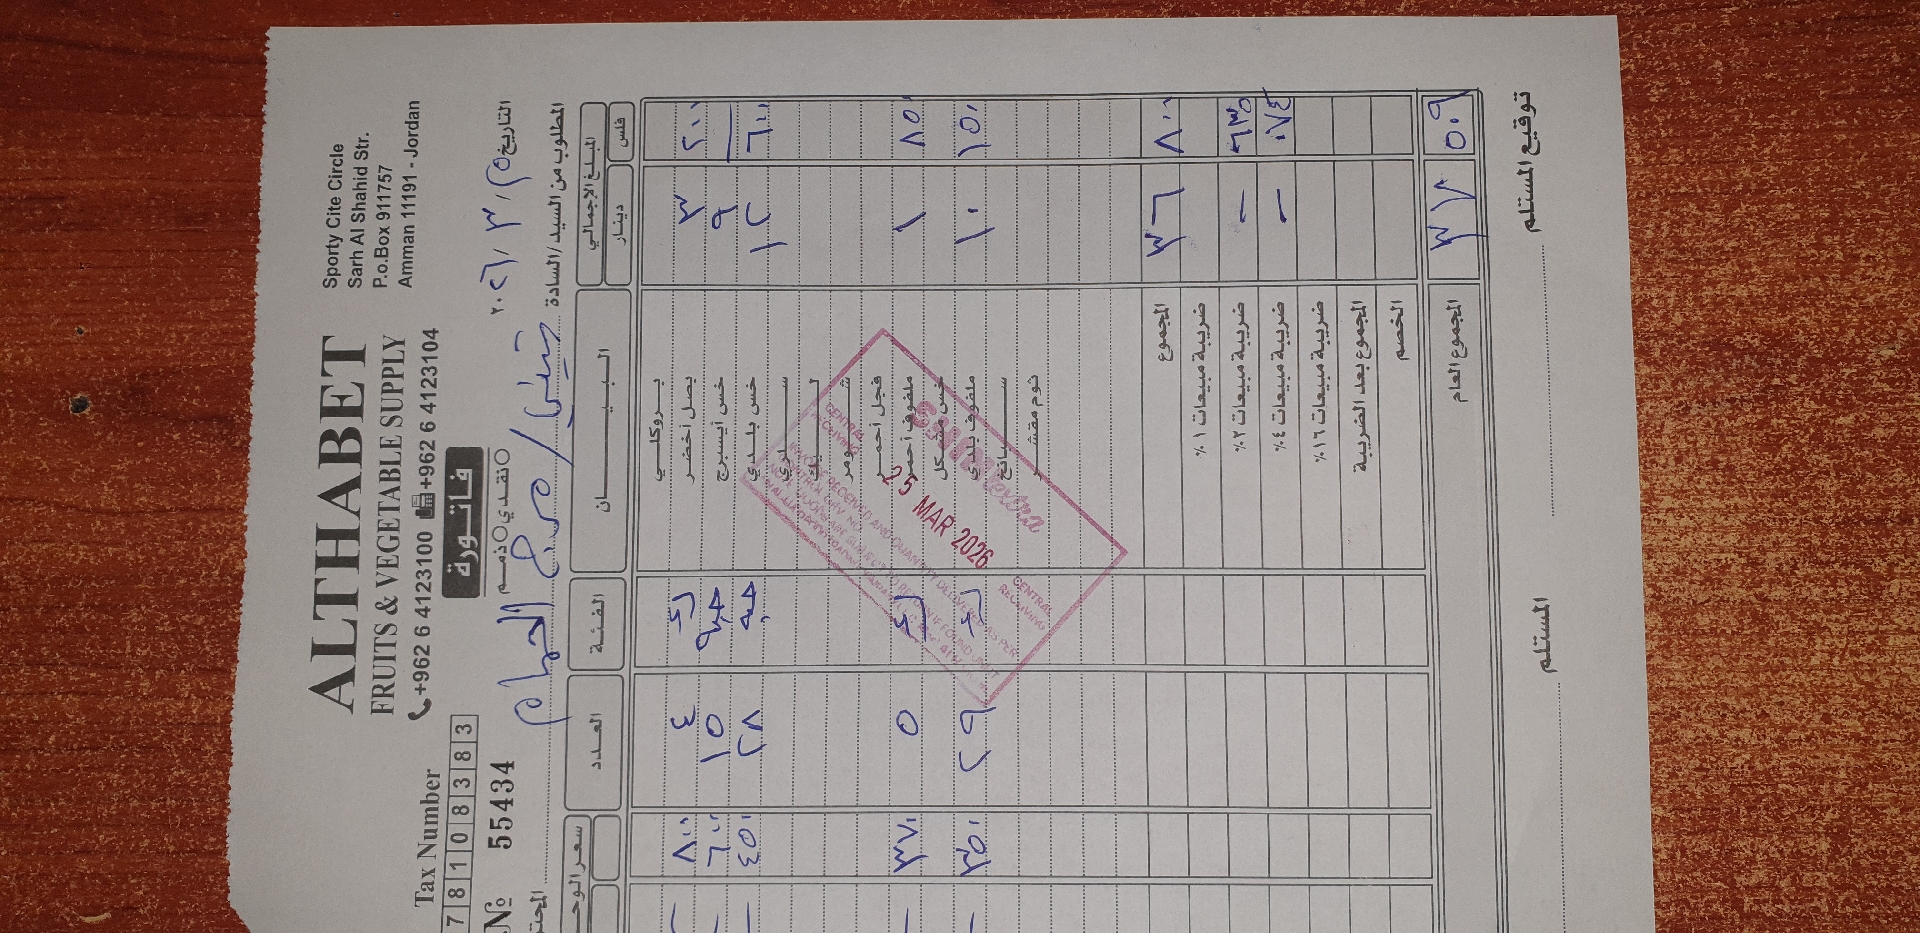 ALTHABET
FRUITS & VEGETABLE SUPPLY
+962 6 4123100 +962 6 4123104
Sporty Cite Circle
Sarh Al Shahid Str.
P.o.Box 911757
Amman 11191 - Jordan
Tax Number
7 8 1 0 8 3 8 3
فاتورة
نقدي ذمم
№ 55434
التاريخ ٢٥ / ٣ / ٢٠٢٦
المطلوب من السيد/السادة
المبلغ الاجمالي البيـــان الفئة العدد سعر الوحـ
فلس دينار
بروكلي
٢٠٠ ٣ بصل أخضر ٤ ٨٠٠
٩ خس أيسبرج حبه ١٥ ٦٠٠
٦٠٠ ١٢ خس بلدي حبه ٢٨ ٤٥٠
فجل أحمر
٨٥٠ ١ ملفوف أحمر ٥ ٣٧٠
خس مشكل
١٥٠ ١٠ ملفوف بلدي ٢٩ ٣٥٠
سبانخ
ثوم مقشر
CENTRAL RECEIVING
25 MAR 2026
CENTRAL RECEIVING
المجموع ٣٦ ٨٠٠
ضريبة مبيعات ١٪
ضريبة مبيعات ٢٪ - ٦٣٥
ضريبة مبيعات ٤٪ - ٠٧٤
ضريبة مبيعات ١٦٪
المجموع بعد الضريبة
الخصم
المجموع العام ٣٧ ٥٠٩
المستلم
توقيع المستلم